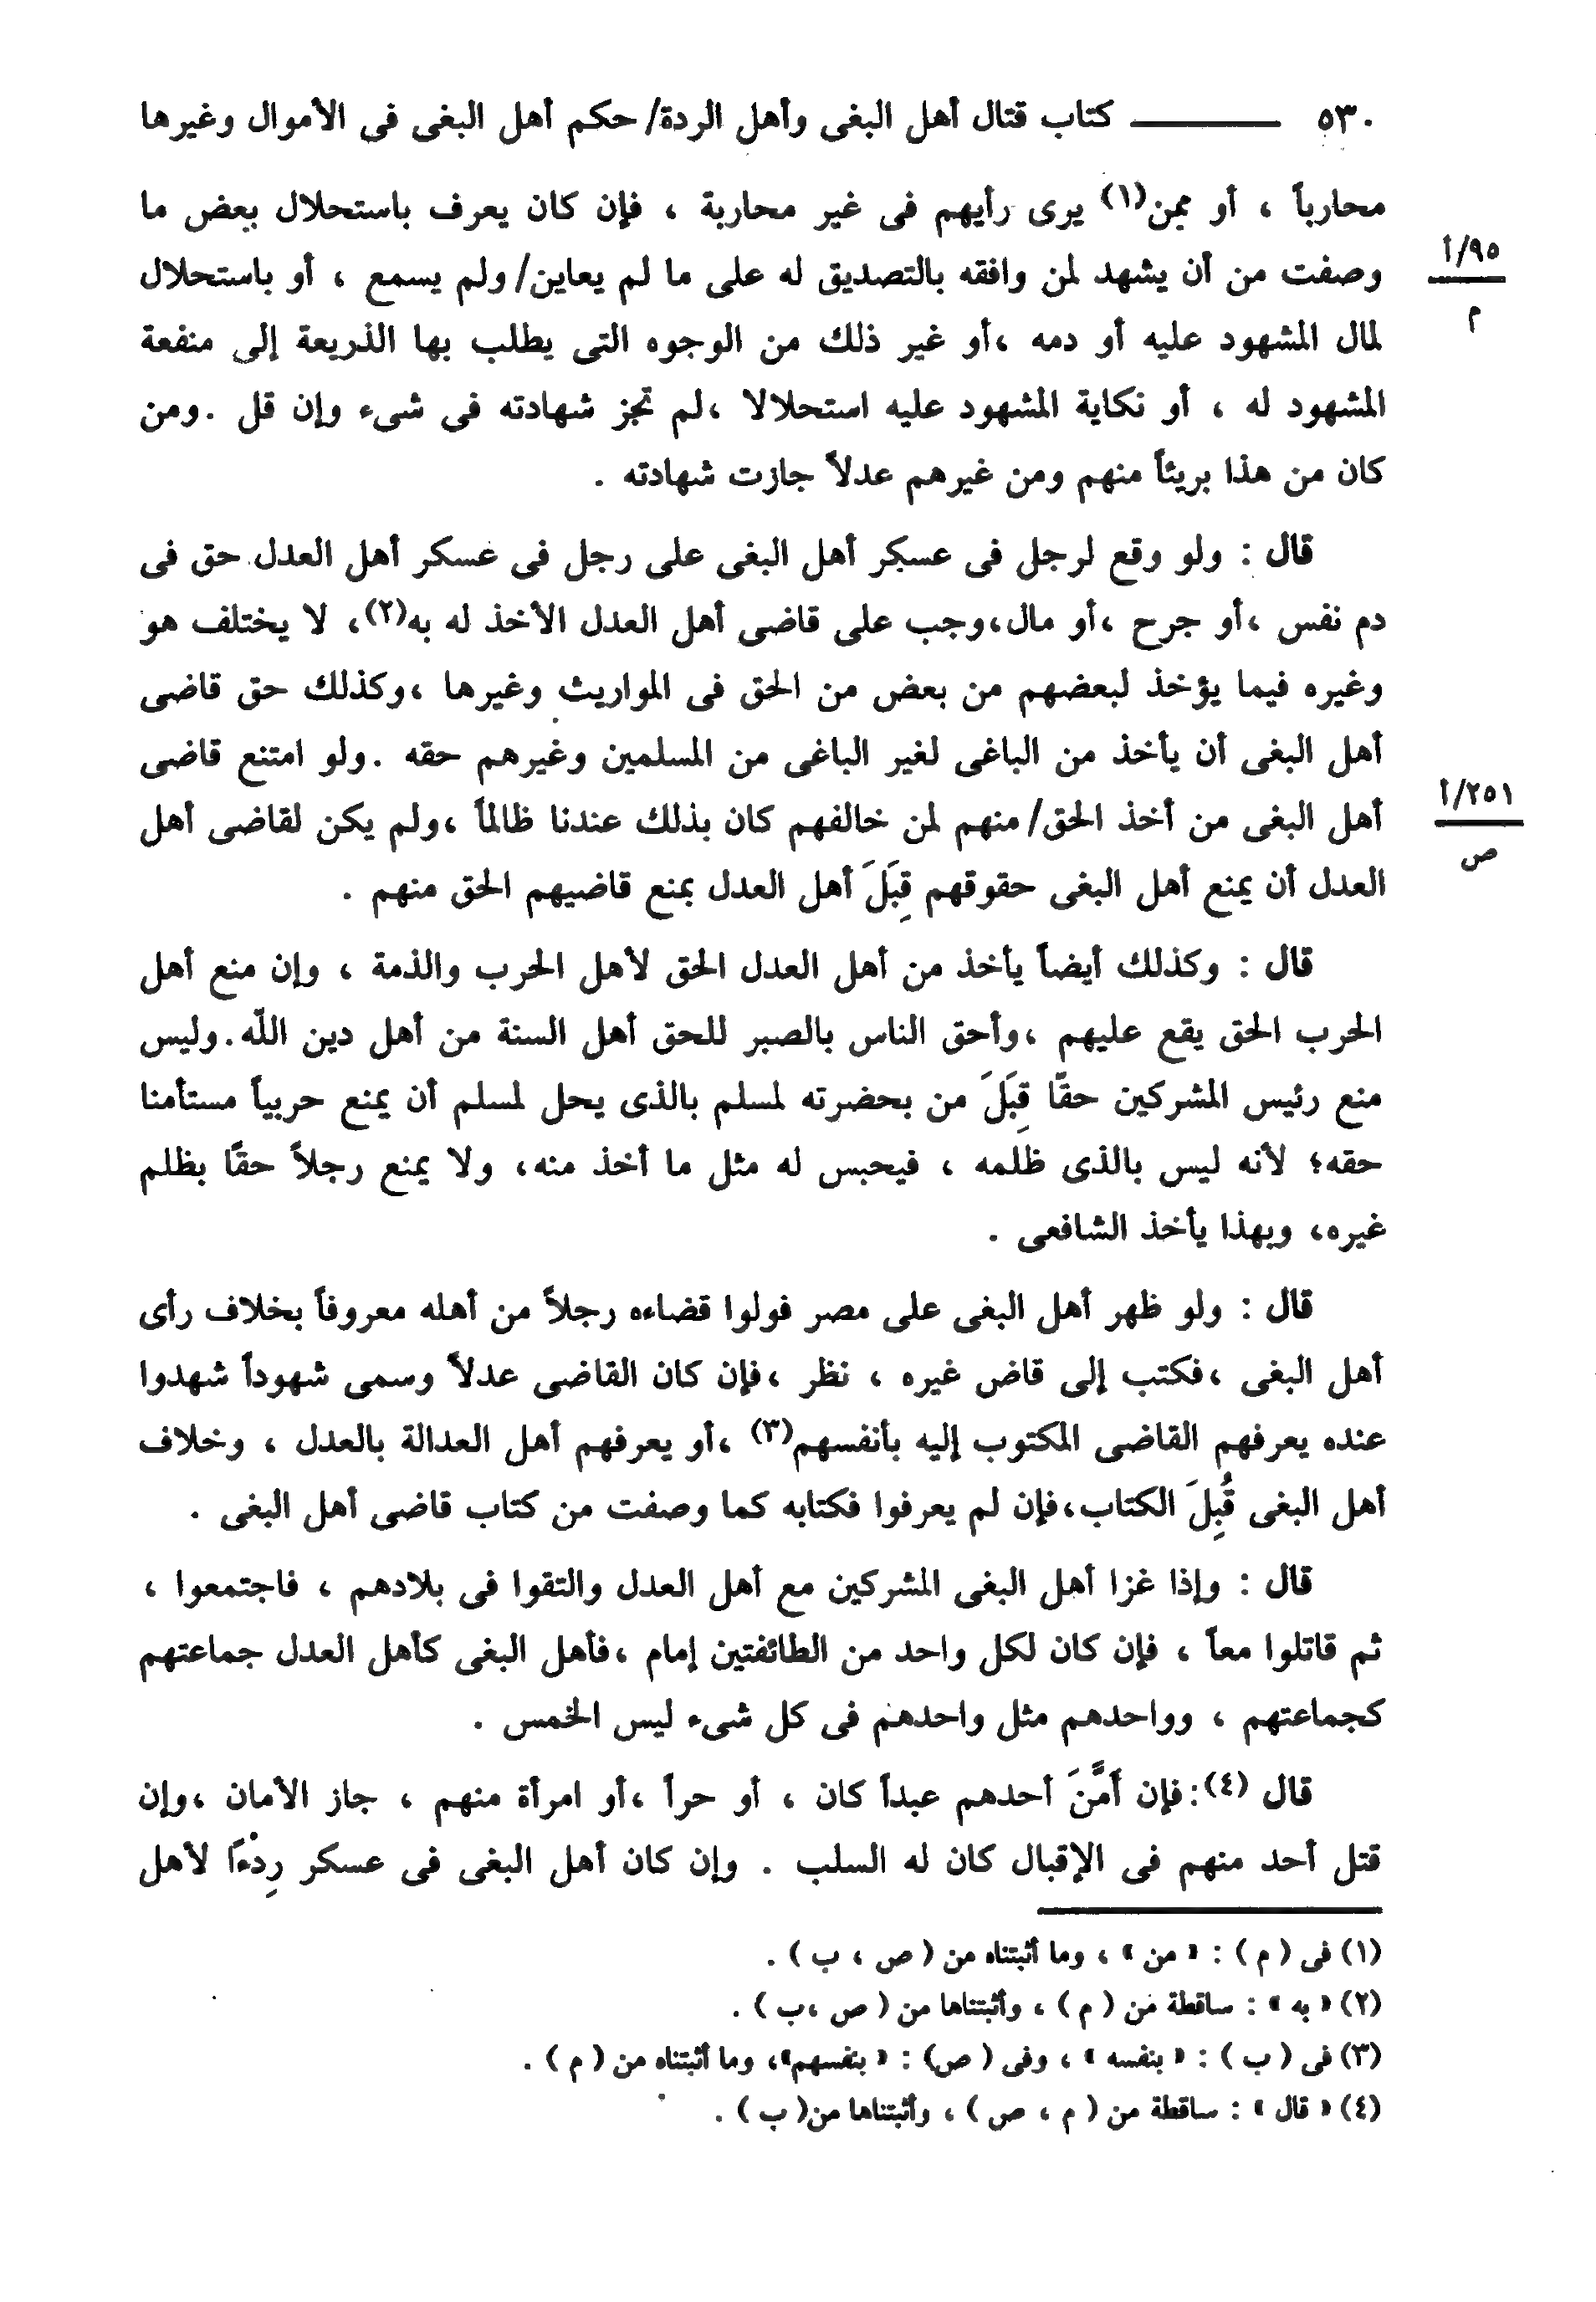 ٥٣٠ ـــــــ كتاب قتال أهل البغى وأهل الردة/ حكم أهل البغى فى الأموال وغيرها
محارباً ، أو ممن(١) يرى رأيهم فى غير محاربة ، فإن كان يعرف باستحلال بعض ما
وصفت من أن يشهد لمن وافقه بالتصديق له على ما لم يعاين/ ولم يسمع ، أو باستحلال
٩٥/أ
م
لمال المشهود عليه أو دمه ،أو غير ذلك من الوجوه التى يطلب بها الذريعة إلى منفعة
المشهود له ، أو نكاية المشهود عليه استحلالا ،لم تجز شهادته فى شىء وإن قل .ومن
كان من هذا بريئاً منهم ومن غيرهم عدلاً جازت شهادته .
قال : ولو وقع لرجل فى عسكر أهل البغى على رجل فى عسكر أهل العدل حق فى
دم نفس ،أو جرح ،أو مال،وجب على قاضى أهل العدل الأخذ له به(٢)، لا يختلف هو
وغيره فيما يؤخذ لبعضهم من بعض من الحق فى المواريث وغيرها ،وكذلك حق قاضى
أهل البغى أن يأخذ من الباغى لغير الباغى من المسلمين وغيرهم حقه .ولو امتنع قاضى
أهل البغى من أخذ الحق/ منهم لمن خالفهم كان بذلك عندنا ظالماً ،ولم يكن لقاضى أهل
٢٥١/أ
ص
العدل أن يمنع أهل البغى حقوقهم قِبَلَ أهل العدل بمنع قاضيهم الحق منهم .
قال : وكذلك أيضاً يأخذ من أهل العدل الحق لأهل الحرب والذمة ، وإن منع أهل
الحرب الحق يقع عليهم ،وأحق الناس بالصبر للحق أهل السنة من أهل دين اللّه.وليس
منع رئيس المشركين حقّا قِبَلَ من بحضرته لمسلم بالذى يحل لمسلم أن يمنع حربياً مستأمنا
حقه؛ لأنه ليس بالذى ظلمه ، فيحبس له مثل ما أخذ منه، ولا يمنع رجلاً حقًا بظلم
غيره، وبهذا يأخذ الشافعى .
قال : ولو ظهر أهل البغى على مصر فولوا قضاءه رجلاً من أهله معروفاً بخلاف رأى
أهل البغى ،فكتب إلى قاض غيره ، نظر ،فإن كان القاضى عدلاً وسمى شهوداً شهدوا
عنده يعرفهم القاضى المكتوب إليه بأنفسهم(٣) ،أو يعرفهم أهل العدالة بالعدل ، وخلاف
أهل البغى قُبِلَ الكتاب،فإن لم يعرفوا فكتابه كما وصفت من كتاب قاضى أهل البغى .
قال : وإذا غزا أهل البغى المشركين مع أهل العدل والتقوا فى بلادهم ، فاجتمعوا ،
ثم قاتلوا معاً ، فإن كان لكل واحد من الطائفتين إمام ،فأهل البغى كأهل العدل جماعتهم
كجماعتهم ، وواحدهم مثل واحدهم فى كل شىء ليس الخمس .
قال (٤):فإن أَمَّنَ أحدهم عبداً كان ، أو حراً ،أو امرأة منهم ، جاز الأمان ،وإن
قتل أحد منهم فى الإقبال كان له السلب . وإن كان أهل البغى فى عسكر رِدْءًا لأهل
(١) فى ( م ) : « من » ، وما أثبتناه من ( ص ، ب ) .
(٢) « به » : ساقطة من ( م ) ، وأثبتناها من ( ص ،ب ) .
(٣) فى ( ب ) : « بنفسه » ، وفى ( ص) : « بنفسهم»، وما أثبتناه من ( م ) .
(٤) « قال » : ساقطة من ( م ، ص ) ، وأثبتناها من( ب ) .